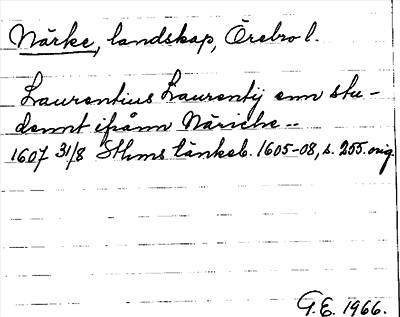 Närke, landskap, Örebro l.
Laurentius Laurentij enn stu-
dennt ifrånn Näriche --
1607 31/8 Sthms tänkeb. 1605-08, s. 255. orig.
G.E. 1966.